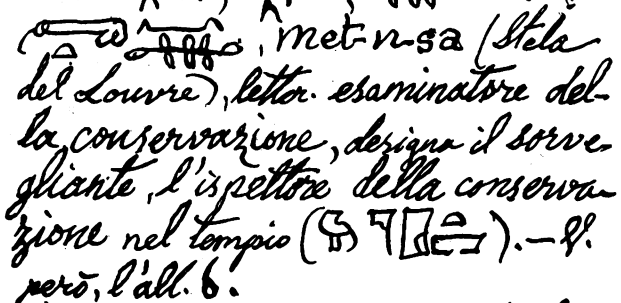 , met-n-sa (Stela
del Louvre), letter. esaminatore del-
la conservazione, designa il sorve-
gliante, l'ispettore della conserva-
zione nel tempio ( ). — V.
però, l'all. 6.